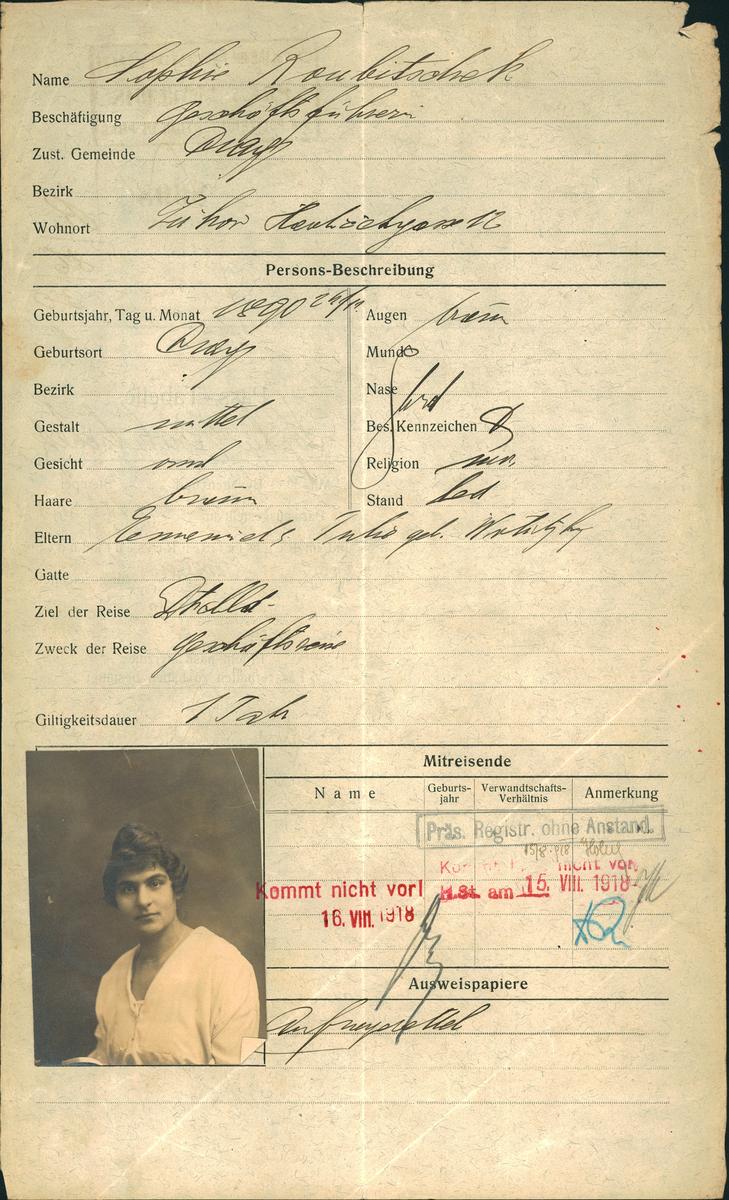 Name Sophie Roubitschek
Beschäftigung Geschäftsführerin
Zust. Gemeinde Prag
Bezirk
Wohnort Havličekgasse 12
Persons-Beschreibung
Geburtsjahr, Tag u. Monat 1890
Augen braun
Geburtsort Prag
Mund
Bezirk
Nase
Gestalt mittel
Bes. Kennzeichen
Gesicht rund
Religion mos.
Haare braun
Stand led
Eltern geb.
Gatte
Ziel der Reise
Zweck der Reise Geschäftsreise
Giltigkeitsdauer 1 Jahr
Mitreisende
Name
Geburts-jahr
Verwandtschafts-Verhältnis
Anmerkung
Präs. Registr. ohne Anstand.
Kommt nicht vor
Kommt nicht vor!
am 15. VIII. 1918
16. VIII. 1918
Ausweispapiere